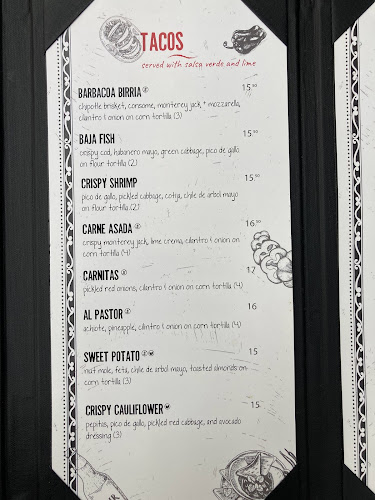 TACOS
served with salsa verde and lime
BARBACOA BIRRIA 15.50
chipotle brisket, consome, monterey jack + mozzarella,
cilantro & onion on corn tortilla (3)
BAJA FISH 15.50
crispy cod, habanero mayo, green cabbage, pico de gallo
on flour tortilla (2)
CRISPY SHRIMP 15.50
pico de gallo, pickled cabbage, cotija, chile de arbol mayo
on flour tortilla (2)
CARNE ASADA 16.50
crispy monterey jack, lime crema, cilantro & onion on
corn tortilla (4)
CARNITAS 17
pickled red onions, cilantro & onion on corn tortilla (4)
AL PASTOR 16
achiote, pineapple, cilantro & onion on corn tortilla (4)
SWEET POTATO 15
nut mole, feta, chile de arbol mayo, toasted almonds on
corn tortilla (3)
CRISPY CAULIFLOWER 15
pepitas, pico de gallo, pickled red cabbage, and avocado
dressing (3)